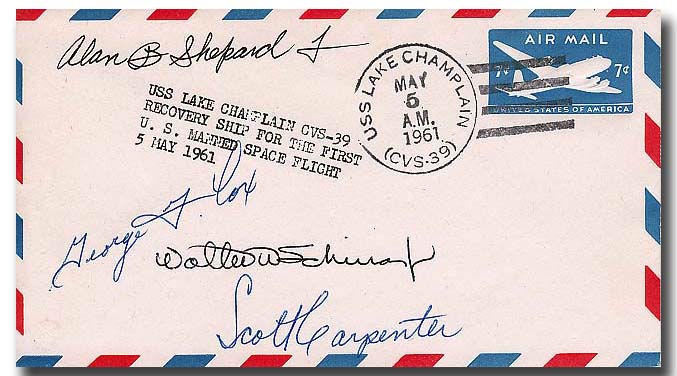 Alan B Shepard Jr
AIR MAIL
7¢ 7¢
UNITED STATES OF AMERICA
USS LAKE CHAMPLAIN
MAY
5
A.M.
1961
(CVS-39)
USS LAKE CHAMPLAIN CVS-39
RECOVERY SHIP FOR THE FIRST
U. S. MANNED SPACE FLIGHT
5 MAY 1961
George F. Cox
Walter M Schirra Jr
Scott Carpenter